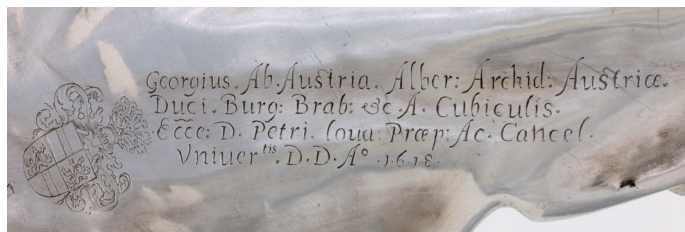 Georgius. Ab. Austria. Alber: Archid: Austriæ.
Duci. Burg: Brab: &c A. Cubiculis.
Ecce: D. Petri. Loua: Præp: Ac. Cancel.
Vniuertis. D. D. Aº .1.6.1.8.